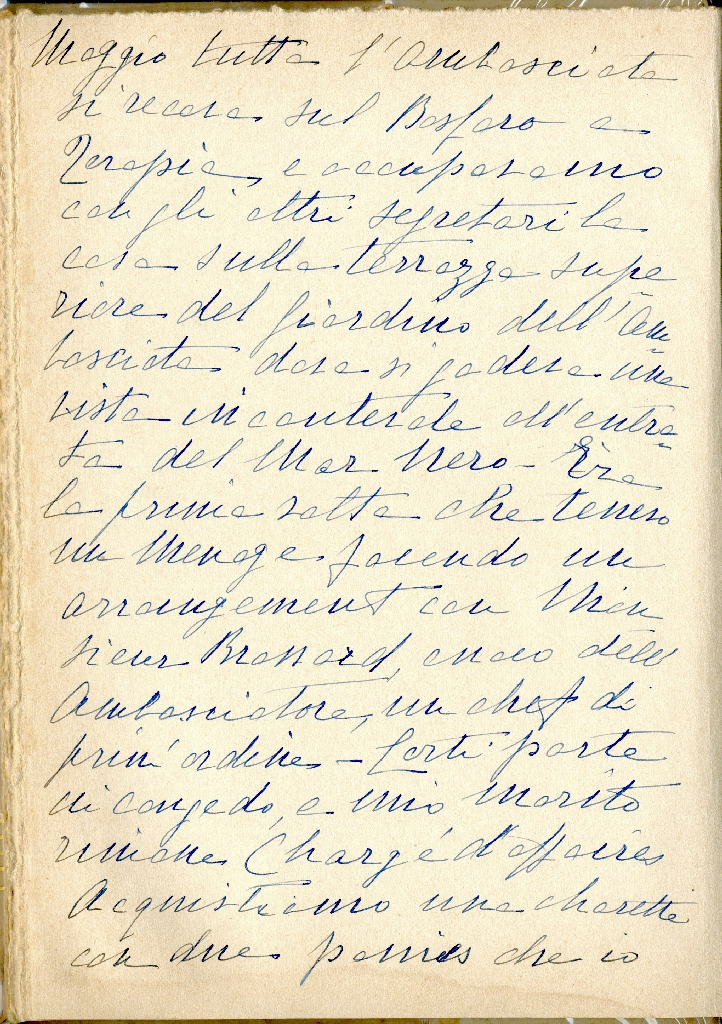 Maggio tutta l'Ambasciata
si recava sul Bosforo a
Terapia, e occupavamo
con gli altri segretari la
casa sulla terrazza supe
riore del giardino dell'Am
basciata dove si godeva una
vista incantevole all'entra
ta del Mar Nero - Era
la prima volta che tenevo
un Menage facendo un
arrangement con Mon
sieur Brossard, cuoco dell'
Ambasciatore, un chef di
prim'ordine - Corti parte
in congedo, e mio marito
rimane Chargé d'affaires
Acquistiamo una charette
con due ponies che io